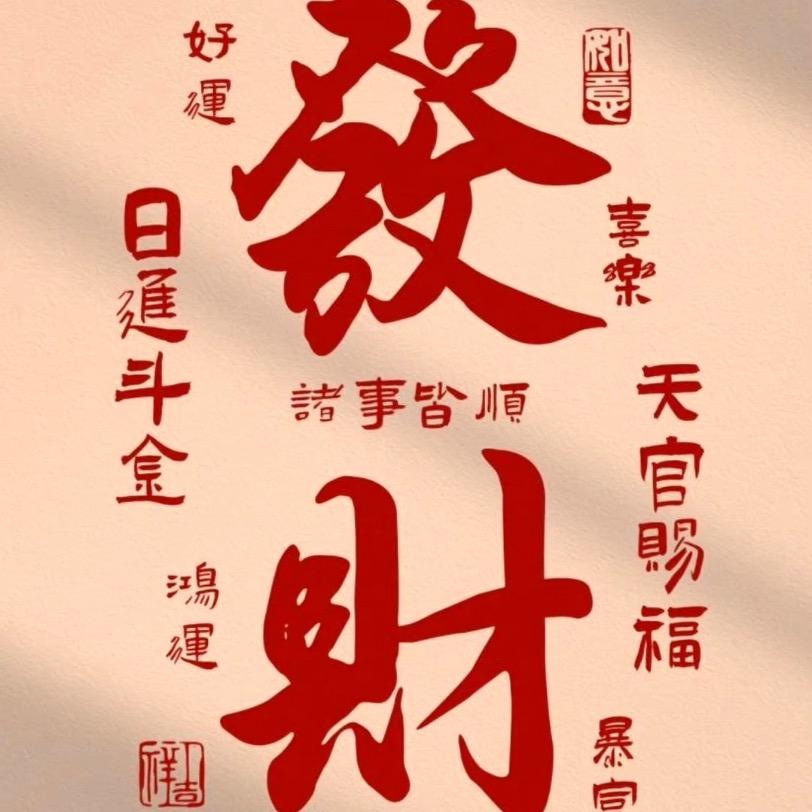 好運
如意
發
喜樂
日進斗金
諸事皆順
天官賜福
財
鴻運
吉祥
暴富